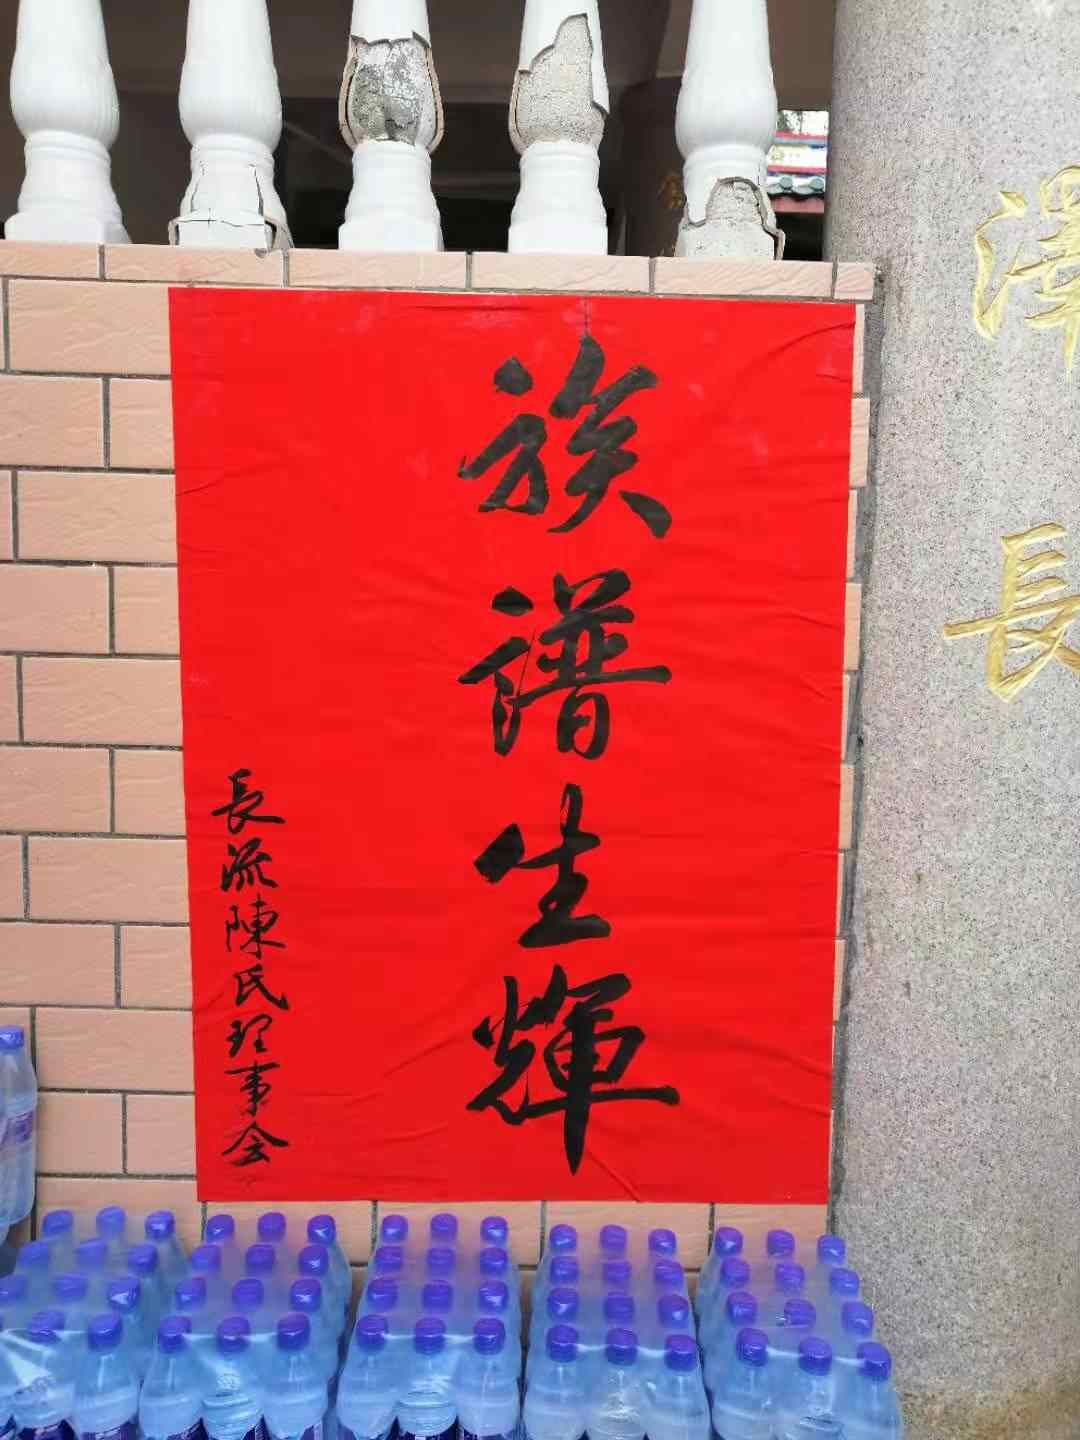 澤長
族譜生輝
長流陳氏理事会